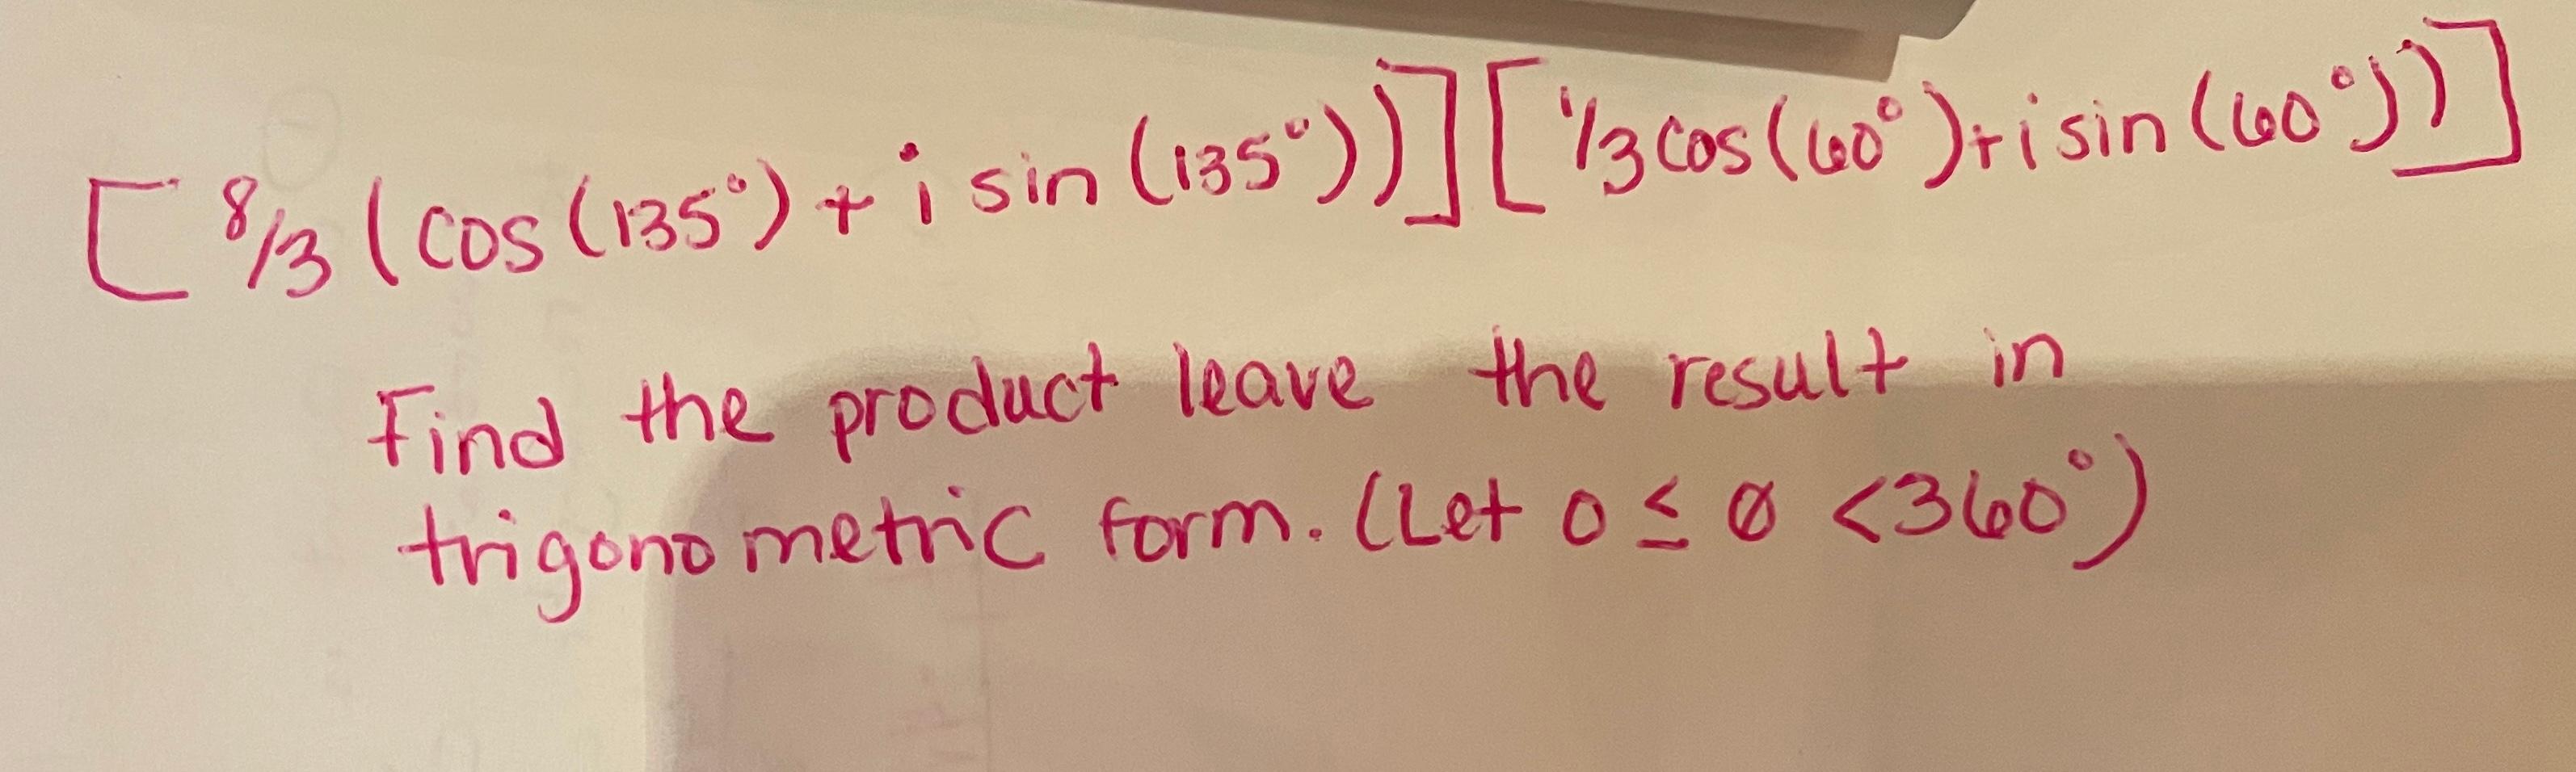 [8/3(cos(135°)+isin(135°))][1/3cos(60°)+isin(60°))]
Find the product leave the result in
trigonometric form. (Let 0≤ø<360°)